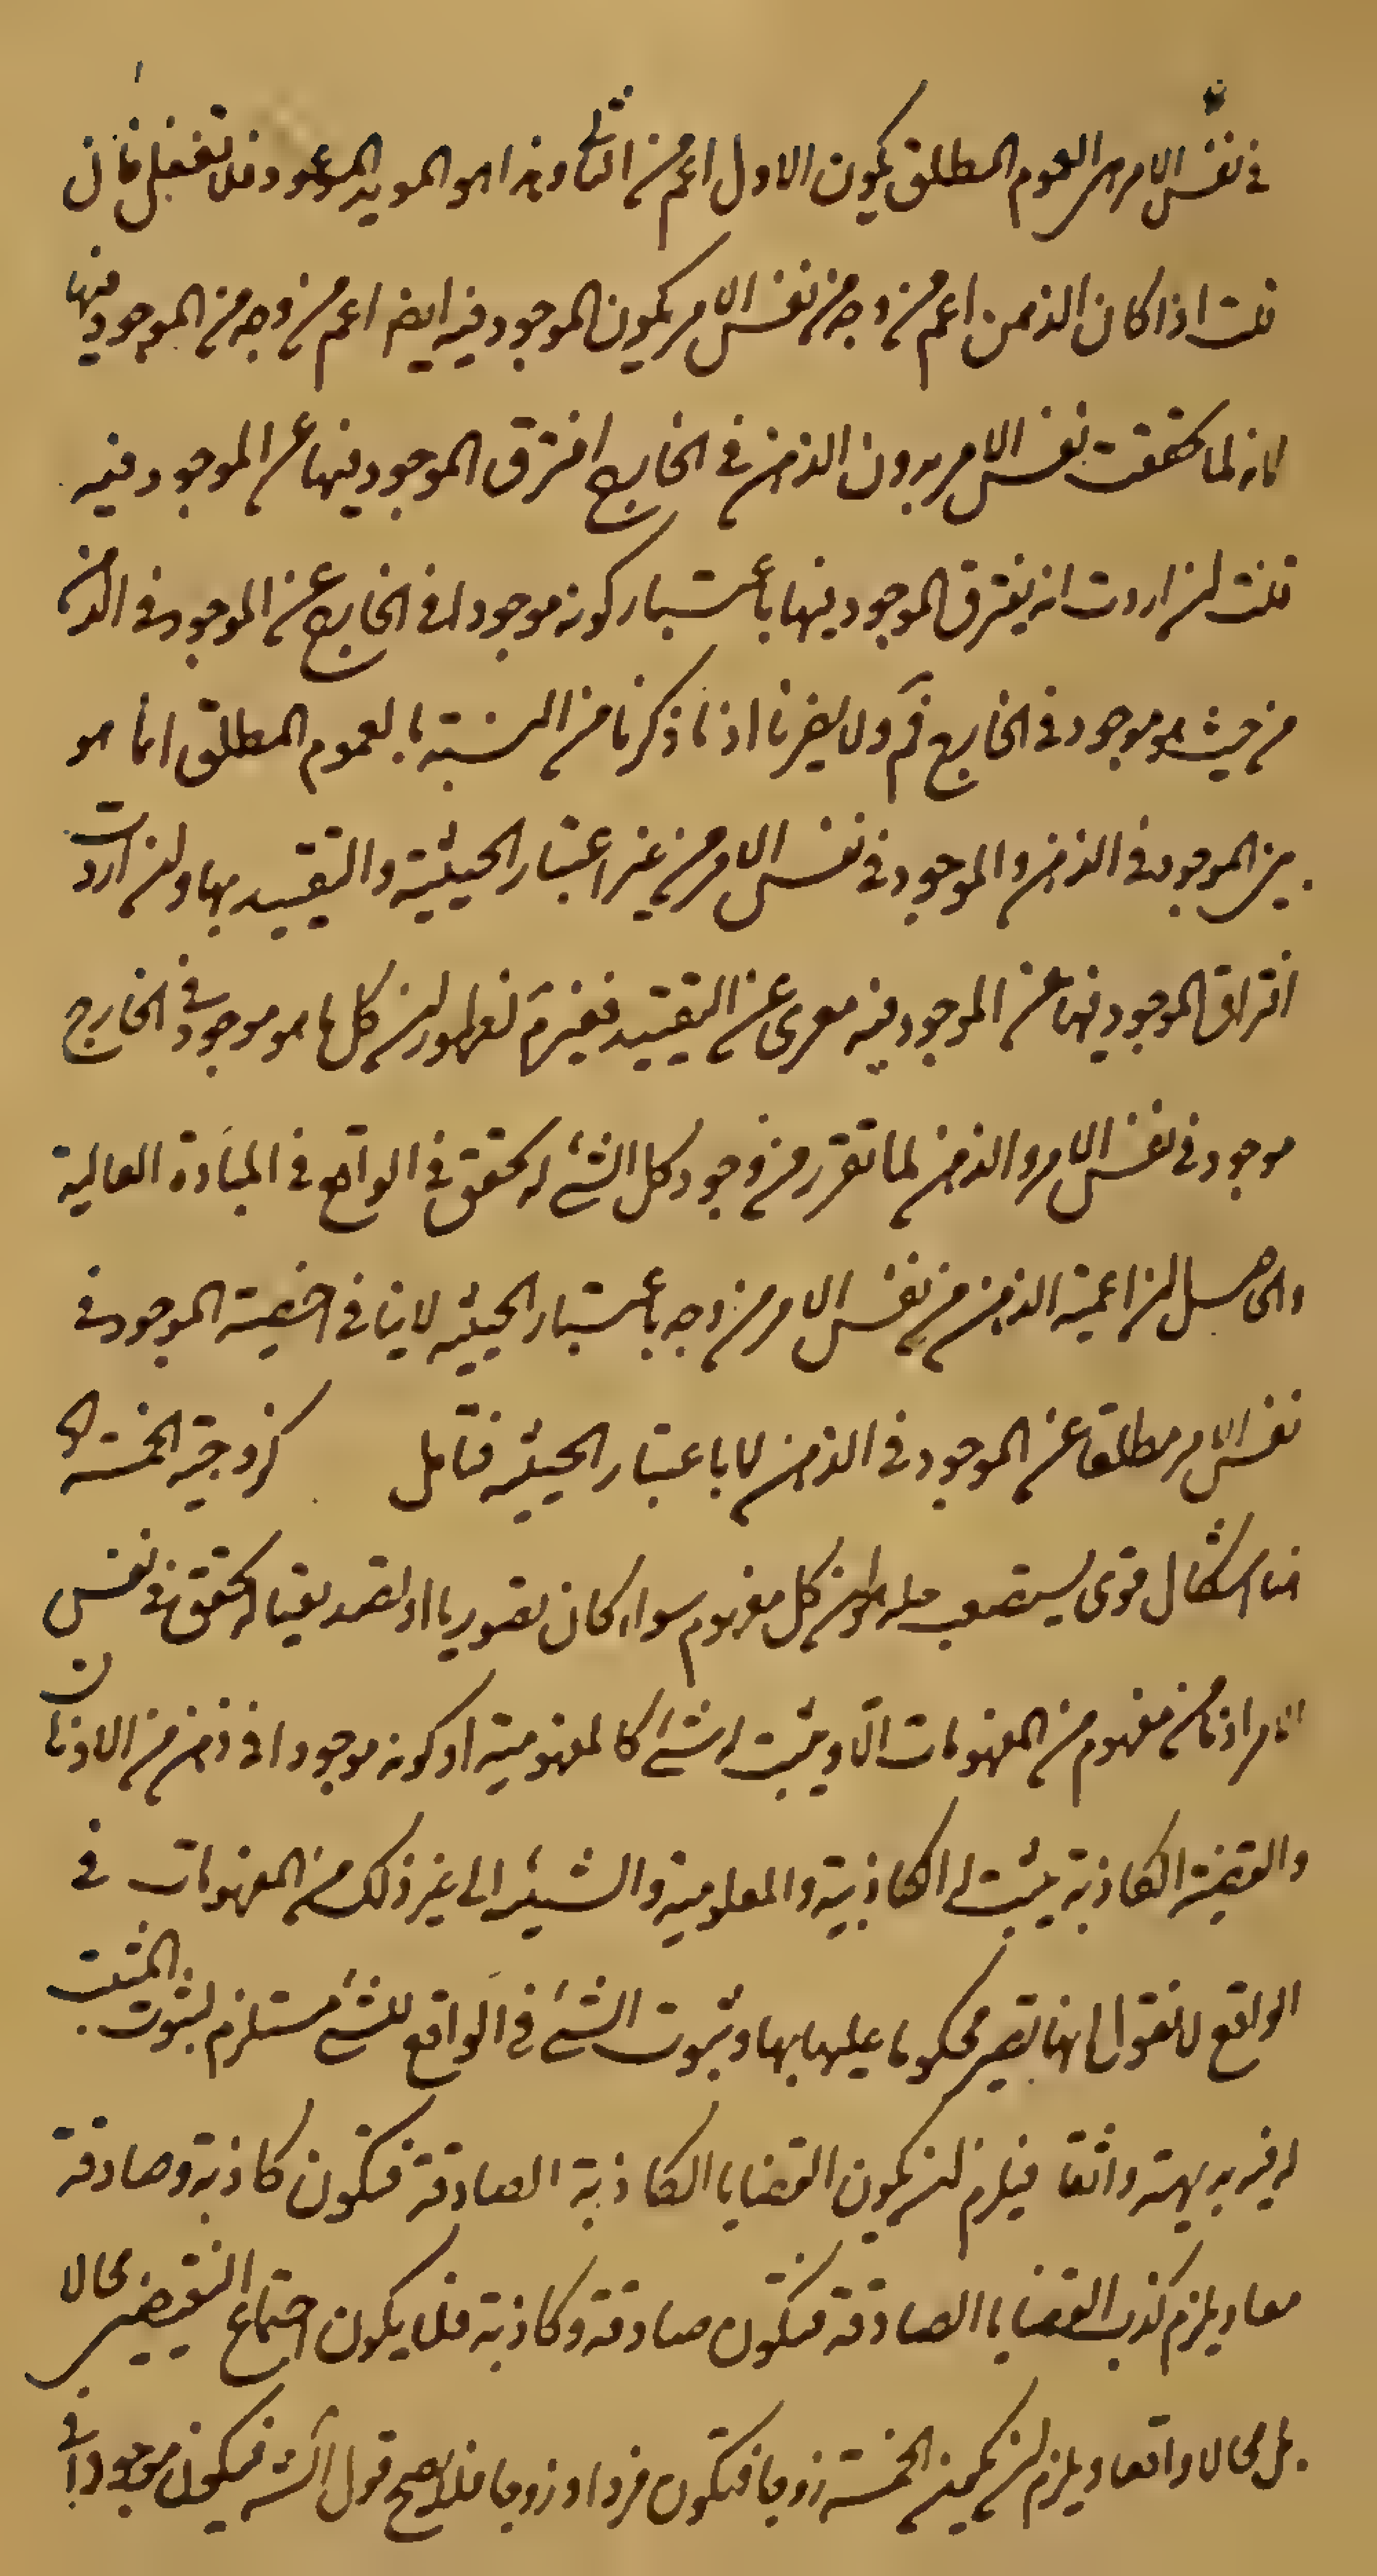 في نفس الامر هي العموم المطلق يكون الاول اعم من الثاني وهذا هو المويد الموعود فلا تغفل فان
قلت اذا كان الذهن اعم من وجه من نفس الامر يكون الموجود فيه ايضا اعم من وجه من الموجود فيها
لانه لما تحققت نفس الامر بدون الذهن في الخارج افترق الموجود فيها عن الموجود فيه
قلت ان اردت انه يفترق الموجود فيها باعتبار كونه موجودا في الخارج عن الموجود في الذهن
من حيث هو موجود في الخارج فم ولا يضرنا اذ ما ذكرنا من النسبة بالعموم المطلق انما هو
بين الموجود في الذهن والموجود في نفس الامر من غير اعتبار الحيثية والتقييد بها وان اردت
افتراق الموجود فيها عن الموجود فيه معرى عن التقييد فغير م لظهور ان كل ما هو موجود في الخارج
موجود في نفس الامر والذهن لما تقرر من وجود كل الشئ له تحقق في الواقع في المبادة العالية
والحاصل ان اعمية الذهن من نفس الامر من وجه باعتبار الحيثية لا ينافي اخصية الموجود في
نفس الامر مطلقا عن الموجود في الذهن لا باعتبار الحيثية فتامل كزوجية الخمسة اه
هنا اشكال قوى يستصعب حله وهو ان كل مفهوم سواء كان تصوريا او تصديقيا له تحقق في نفس
الامر اذ ما من مفهوم من المفهومات الا ويثبت له شئ كالمفهومية او كونه موجودا في ذهن من الاذهان
والقضية الكاذبة يثبت لها الكاذبية والمعلومية والشيئية الى غير ذلك من المفهومات في
الواقع لا نقول انها تصير محكوما عليها بها وثبوت الشئ في الواقع للشئ مستلزم لثبوت المثبت
له فيه بديهة واتفاقا فيلزم ان يكون القضايا الكاذبة الصادقة فتكون كاذبة وصادقة
معا ويلزم كذب القضايا الصادقة فتكون صادقة وكاذبة فلا يكون اجتماع النقيضين محالا
بل محالا واقعا ويلزم ان يكون الخمسة زوجا فتكون فردا وزوجا فلا يصح قول الشه فيكون موجودا في